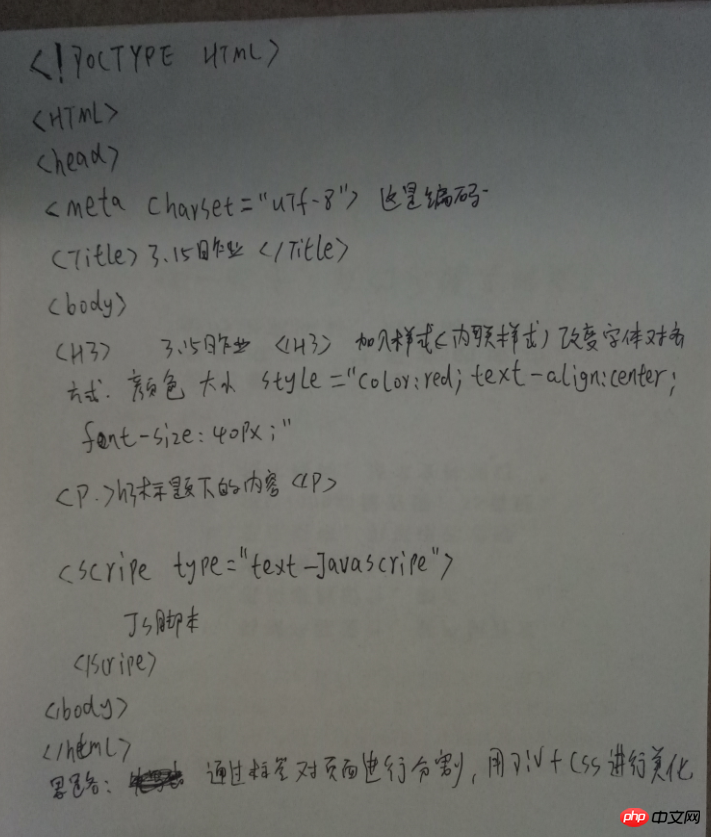 <!DOCTYPE HTML>
<HTML>
<head>
<meta charset="utf-8"> 这是编码
<Title> 3.15日作业 </Title>
<body>
<H3> 3.15日作业 </H3> 加入样式(内联样式)改变字体对齐
方式. 颜色 大小 style="color:red; text-align:center;
font-size:40px;"
<P.>h3标题下的内容</P>
<scripe type="text-Javascripe">
JS脚本
</scripe>
</body>
</html>
思路: 通过标签对页面进行分割,用Div+Css进行美化
php 中文网